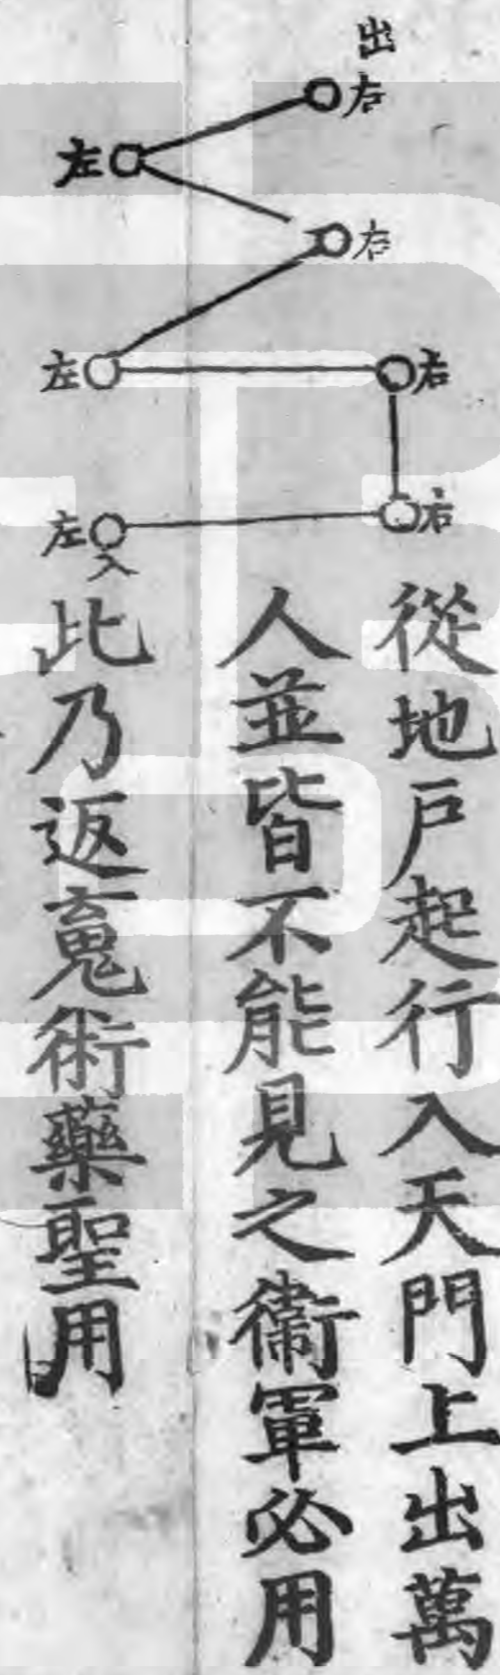 出
右
左
右
左
右
右
左
入
從地戶起行入天門上出萬
人並皆不能見之衞軍必用
此乃返䰟術藥聖用